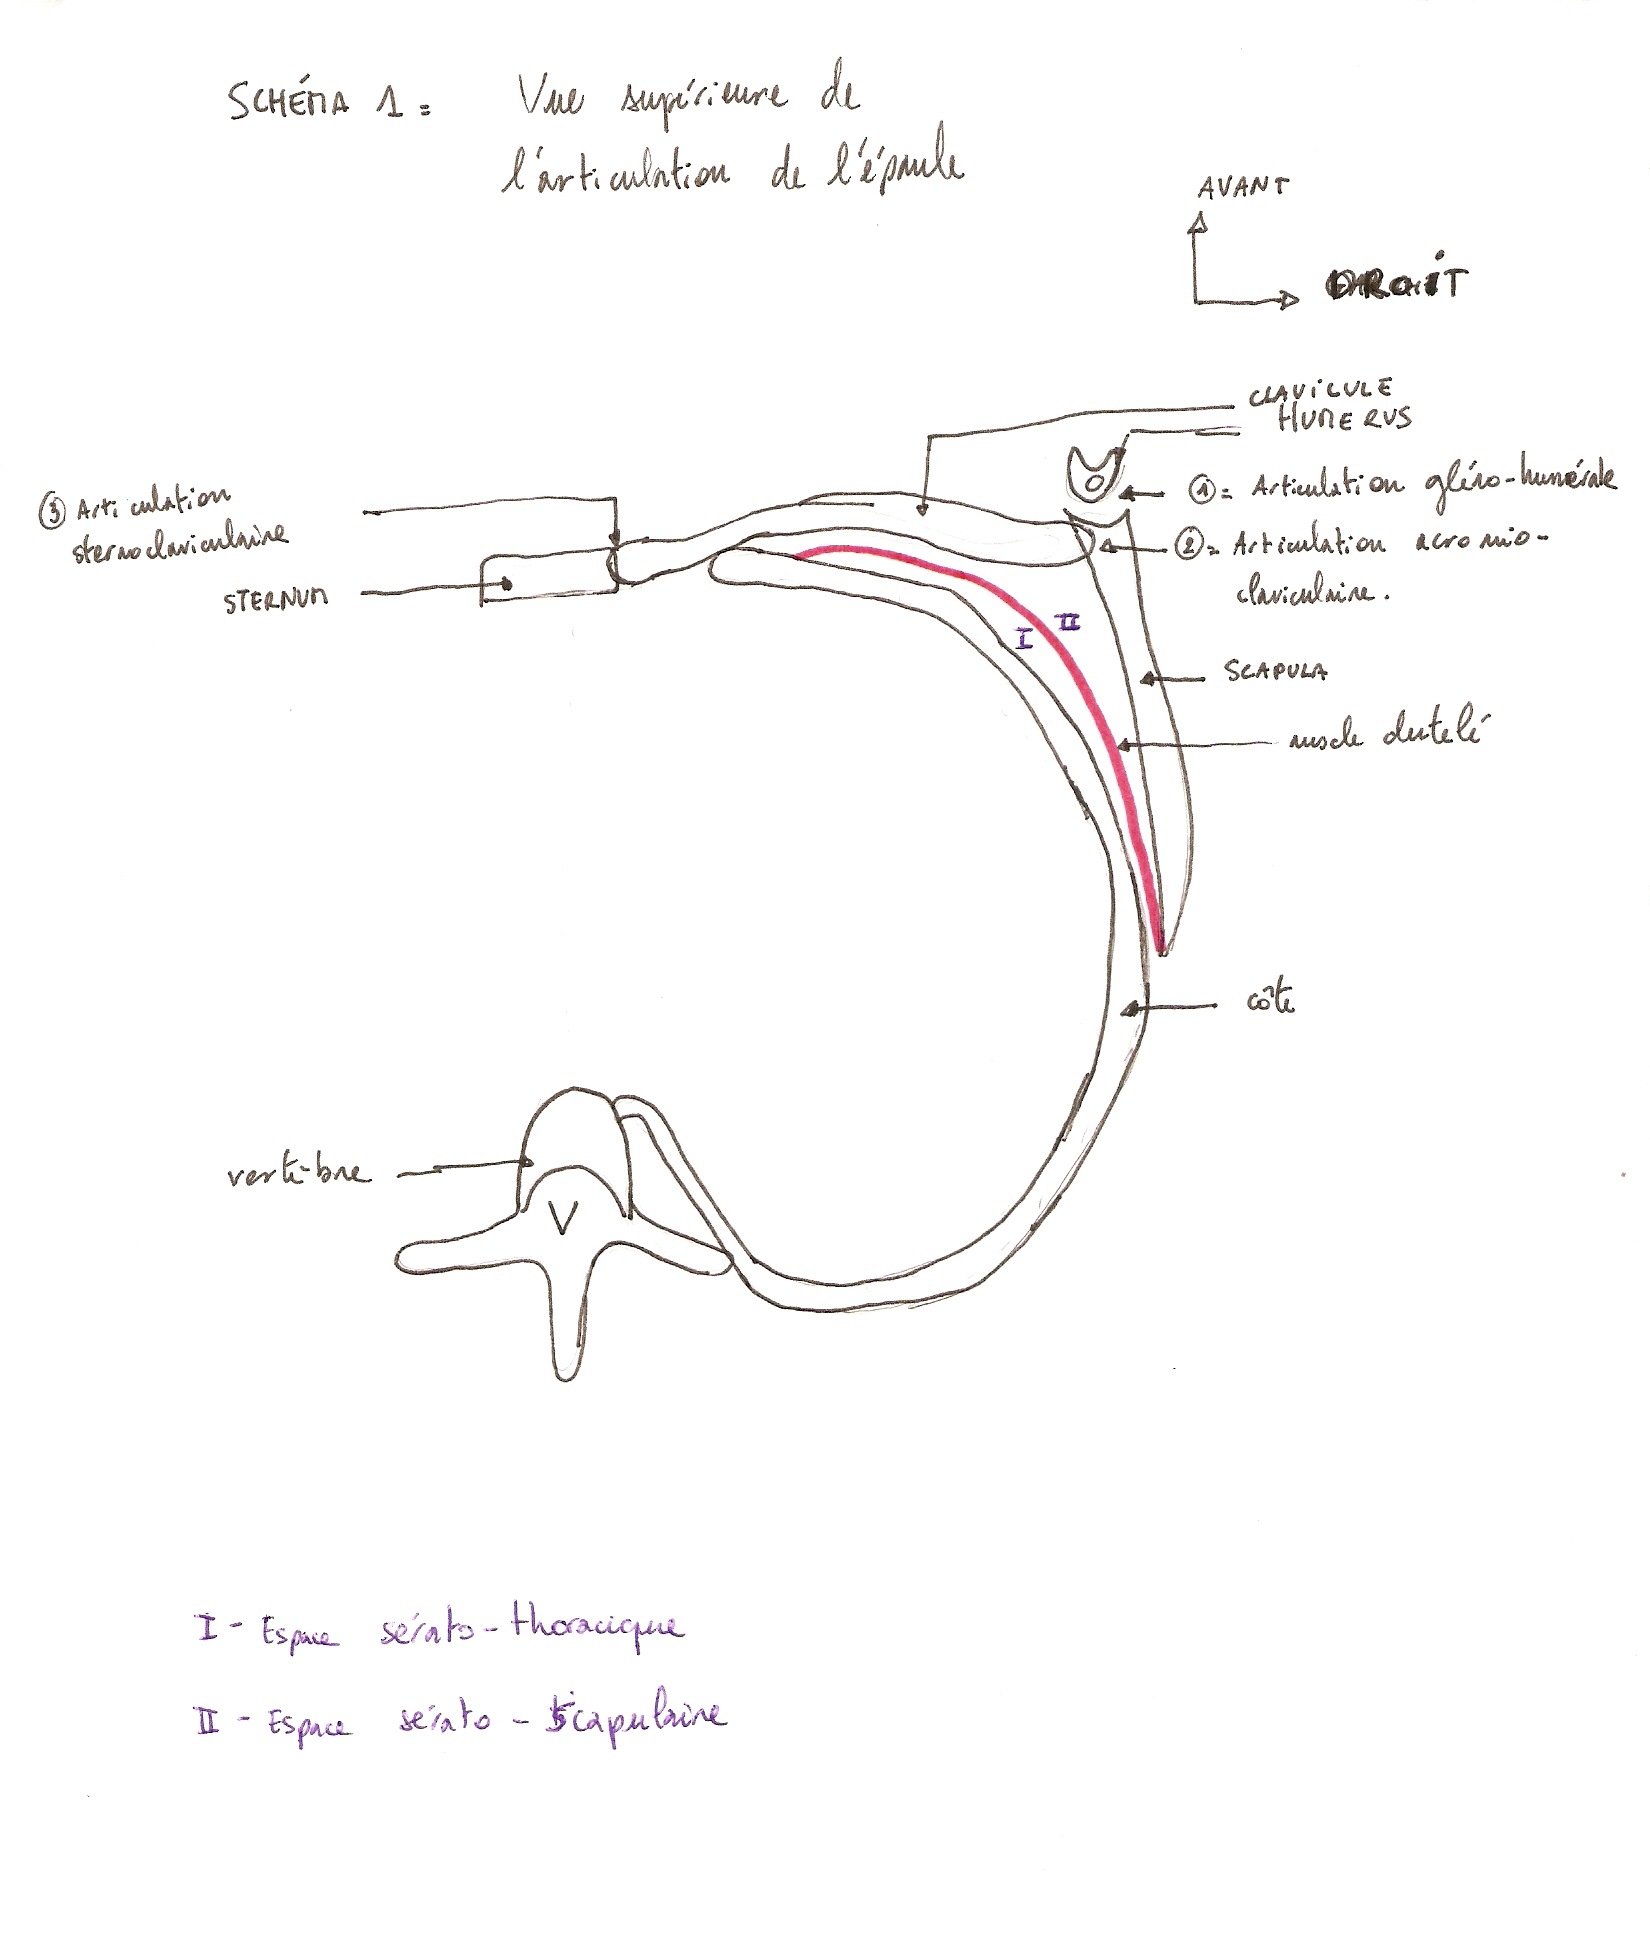 SCHÉMA 1 = Vue supérieure de
l'articulation de l'épaule
AVANT
DROIT
CLAVICULE
HUMERUS
③ Articulation
sternoclaviculaire
① = Articulation gléno-humérale
② = Articulation acromio-
claviculaire.
STERNUM
I II
SCAPULA
muscle dentelé
côte
vertèbre
V
I - Espace sérato-thoracique
II - Espace sérato-scapulaire